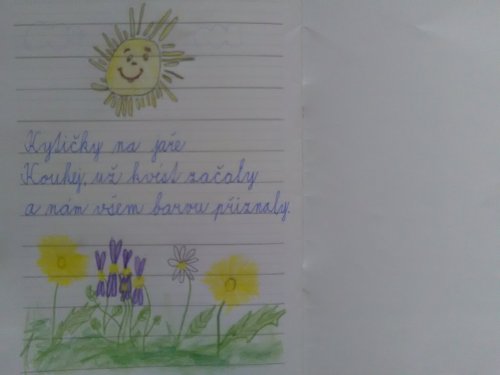 Kytičky na jaře
Kouhej, už kvíst začaly
a nám všem barvu přiznaly.